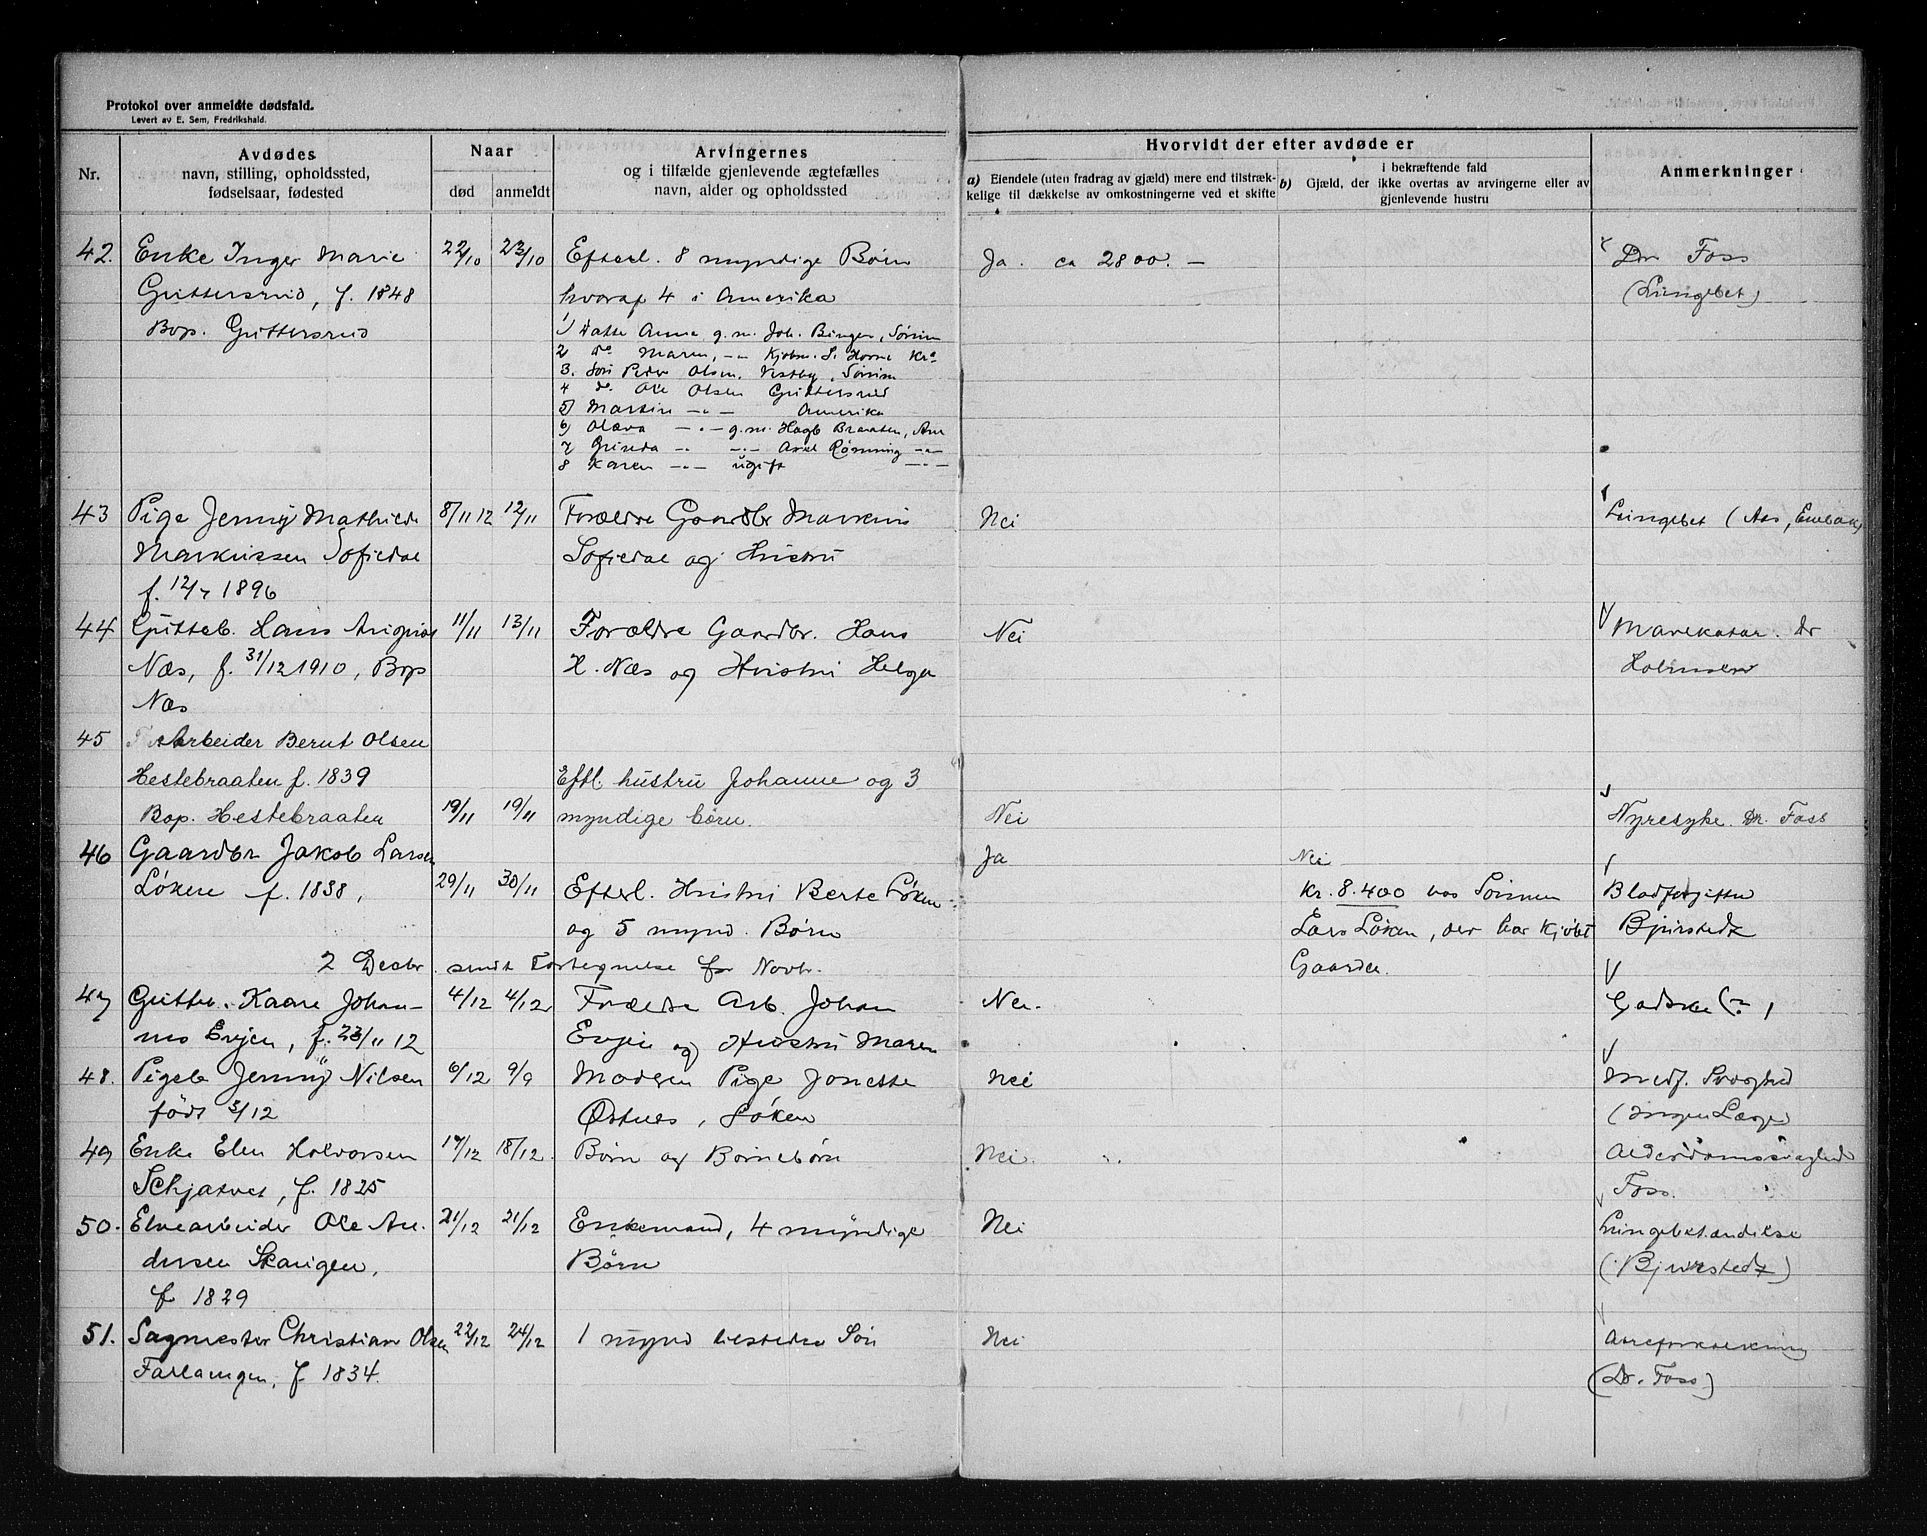 Protokol over anmeldte dødsfald.
Levert av E. Sem, Fredrikshald.
Nr.
Avdødes
navn, stilling, opholdssted,
fødselsaar, fødested
Naar
død
anmeldt
Arvingernes
og i tilfælde gjenlevende ægtefælles
navn, alder og opholdssted
Hvorvidt der efter avdøde er
a) Eiendele (uten fradrag av gjæld) mere end tilstræk-
kelige til dækkelse av omkostningerne ved et skifte
b) Gjæld, der
i bekræftende fald
ikke overtas av arvingerne eller av
gjenlevende hustru
Anmerkninger
42.
Enke Inger Marie
Guttersrud, f. 1848
Bop. Guttersrud
22/10
23/10
Efterl. 8 myndige Børn
hvoraf 4 i Amerika
1) Datte Anna g.m. Joh. Binger, Sørum
2 do Maren, -"- Kjøbm. S. Horne Kra
3. Søn Peder Olsen, Vestby, Sørum
4 do Ole Olsen Guttersrud
5) Martin -"- Amerika
6) Olava -"- g.m. Hagb Braaten, Am
7 -"- -"- Axel Rømning -"-
8 Karen -"- ugift -"-
Ja. ca 2800.-
Dr Foss
(Lungebet)
43
Pige Jenny Mathilde
Markussen Sofiedal
f. 12/7 1896
8/11 12
12/11
Forældre Gaardbr Markus
Sofiedal og Hustru
Nei
Lungebet (Aas, Enebak)
44
Gutteb. Hans
Næs, f. 31/12 1910, Bop
Næs
11/11
13/11
Forældre Gaardbr. Hans
H. Næs og Hustru Helga
Nei
Dr
45
Arbeider Bernt Olsen
Hestebraaten f. 1839
Bop. Hestebraaten
19/11
19/11
Eftl. hustru Johanne og 3
myndige børn.
Nei
Nyresyke. Dr. Foss
46
Gaardbr Jakob Larsen
Løken f. 1838,
29/11
30/11
Efterl. Hustru Berte Løken
og 5 mynd. Børn
Ja
Nei
Kr. 8.400 hos Sønnen
Lars Løken, der har kjøbt
Gaarden.
Blodforgiftn
Bjurstedt
2 Decbr. sendt Fortegnelse for Novbr.
47
Gutteb. Kaare Johan-
nes Evjen, f. 23/11 12
4/12
4/12
Forældre Arb. Johan
Evjen og Hustru Maren
Nei.
48.
Pigeb Jenny Nilsen
født 3/12
6/12
9/9
Moderen Pige Jonette
Østnes, Løken
Nei
Medf. Svaghed
(Ingen Læge
49
Enke Elen Halvorsen
Schjatvet, f. 1825
17/12
18/12.
Børn og Børnebørn
Nei.
Alderdomssvaghed
Foss.
50.
Elvearbeider Ole An-
dersen Skangen,
f 1829
21/12
21/12
Enkemand, 4 myndige
Børn
Nei
Lungebetændelse
(Bjurstedt)
51.
Sagmester Christian Olsen
Farlangen, f 1834.
22/12
24/12
1 mynd tilstede Søn
Nei
Areforkalkning
(Dr. Foss)